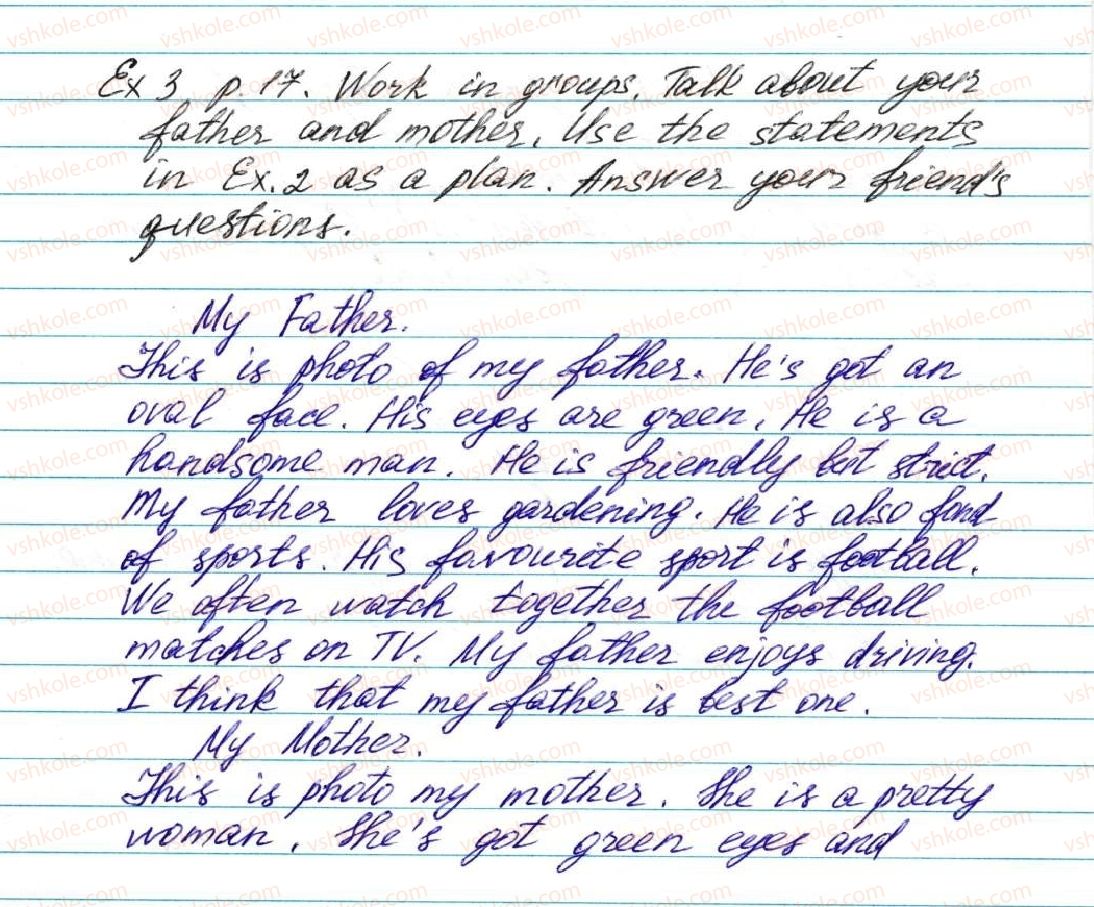 Ex 3 p. 17. Work in groups. Talk about your
father and mother. Use the statements
in Ex. 2 as a plan. Answer your friend's
questions.
My Father.
This is photo of my father. He's got an
oval face. His eyes are green. He is a
handsome man. He is friendly but strict.
My father loves gardening. He is also fond
of sports. His favourite sport is football.
We often watch together the football
matches on TV. My father enjoys driving.
I think that my father is best one.
My Mother.
This is photo my mother. She is a pretty
woman. She's got green eyes and